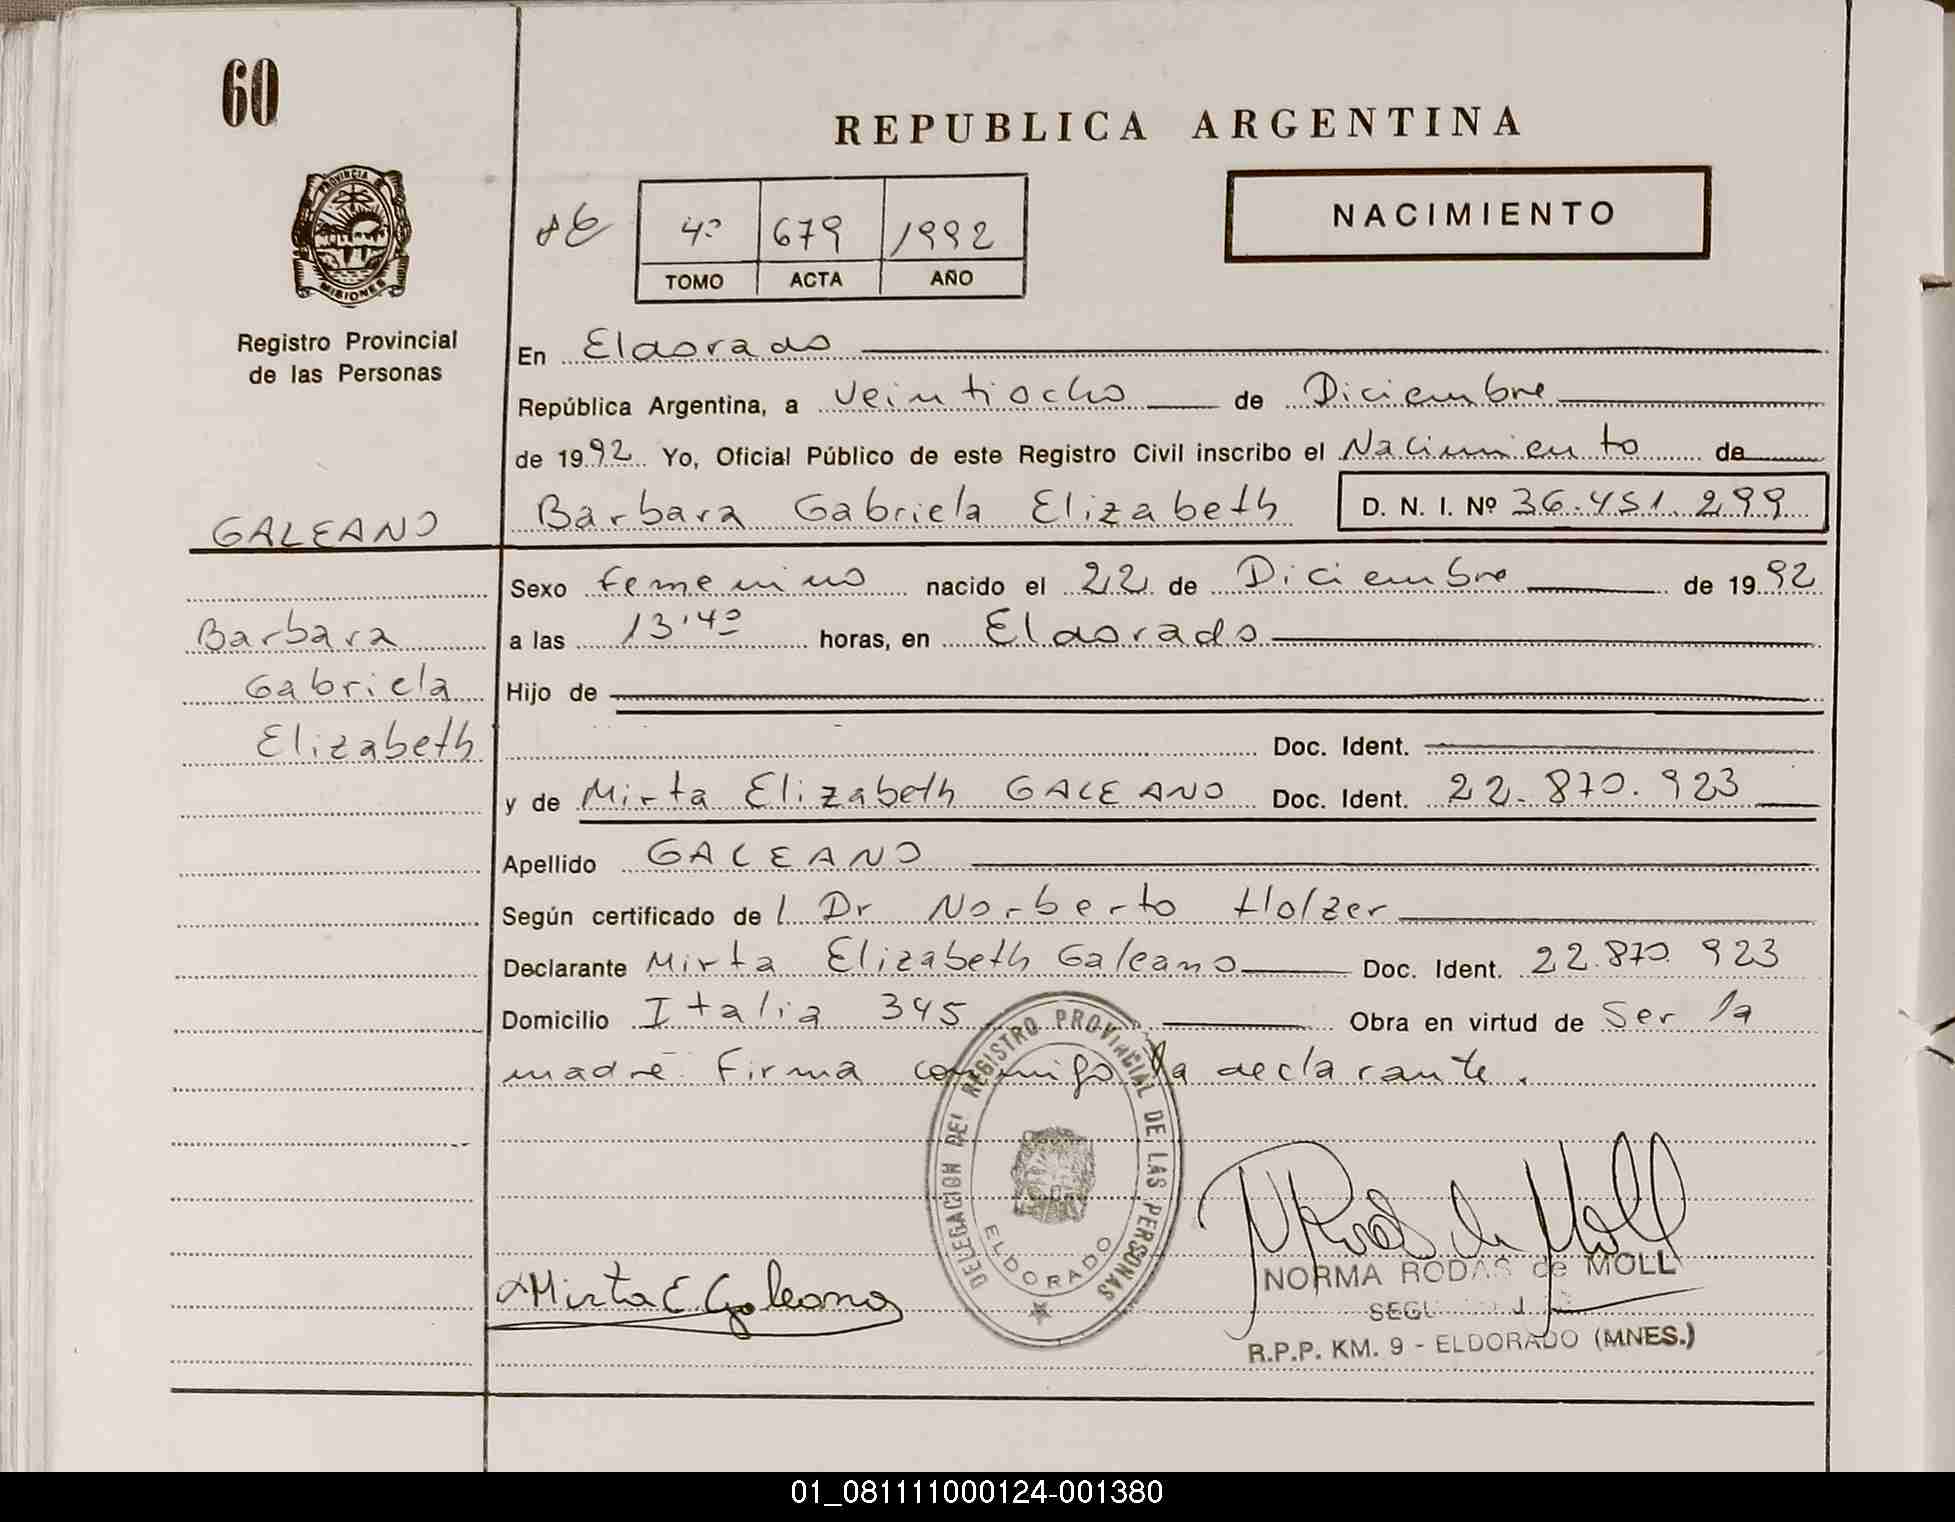 60
REPUBLICA ARGENTINA
PROVINCIA DE
MISIONES
Registro Provincial
de las Personas
4º 679 1992
TOMO ACTA AÑO
NACIMIENTO
En Eldorado
República Argentina, a veintiocho de Diciembre
de 1992 Yo, Oficial Público de este Registro Civil inscribo el Nacimiento de
GALEANO
Barbara Gabriela Elizabeth D. N. I. Nº 36.451.299
Sexo femenino nacido el 22 de Diciembre de 1992
Barbara
a las 13,40 horas, en Eldorado
Gabriela
Hijo de
Elizabeth
Doc. Ident.
y de Mirta Elizabeth GALEANO Doc. Ident. 22.870.923
Apellido GALEANO
Según certificado de l Dr Norberto Holzer
Declarante Mirta Elizabeth Galeano Doc. Ident. 22.870.923
Domicilio Italia 345 Obra en virtud de Ser la
madre. Firma conmigo la declarante.
DELEGACION DEL REGISTRO PROVINCIAL DE LAS PERSONAS
ELDORADO
Mirta E. Galeano
NRodas de Moll
NORMA RODAS de MOLL
R.P.P. KM. 9 - ELDORADO (MNES.)
01_081111000124-001380